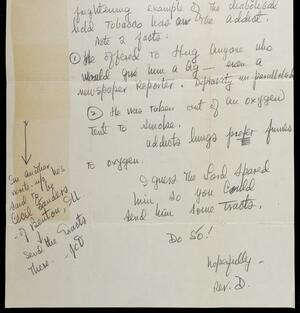 frightening example of the diabolical
hold Tobacco has on the Addict.
Note 2 facts:
① He offered to Hug Anyone who
would give him a cig — even a
newspaper Reporter. Depravity un-paralleled
② He was taken out of an oxygen
Tent to Smoke.
addicts lungs prefer fumes
to oxygen.
I guess The Lord Spared
him so you Could
send him some Tracts.
Do So!
hopefully -
Rev. D.
In another
write-up he's
said to be
Cecil Sanders
of Benton, Ill
Send the Tracts
There.